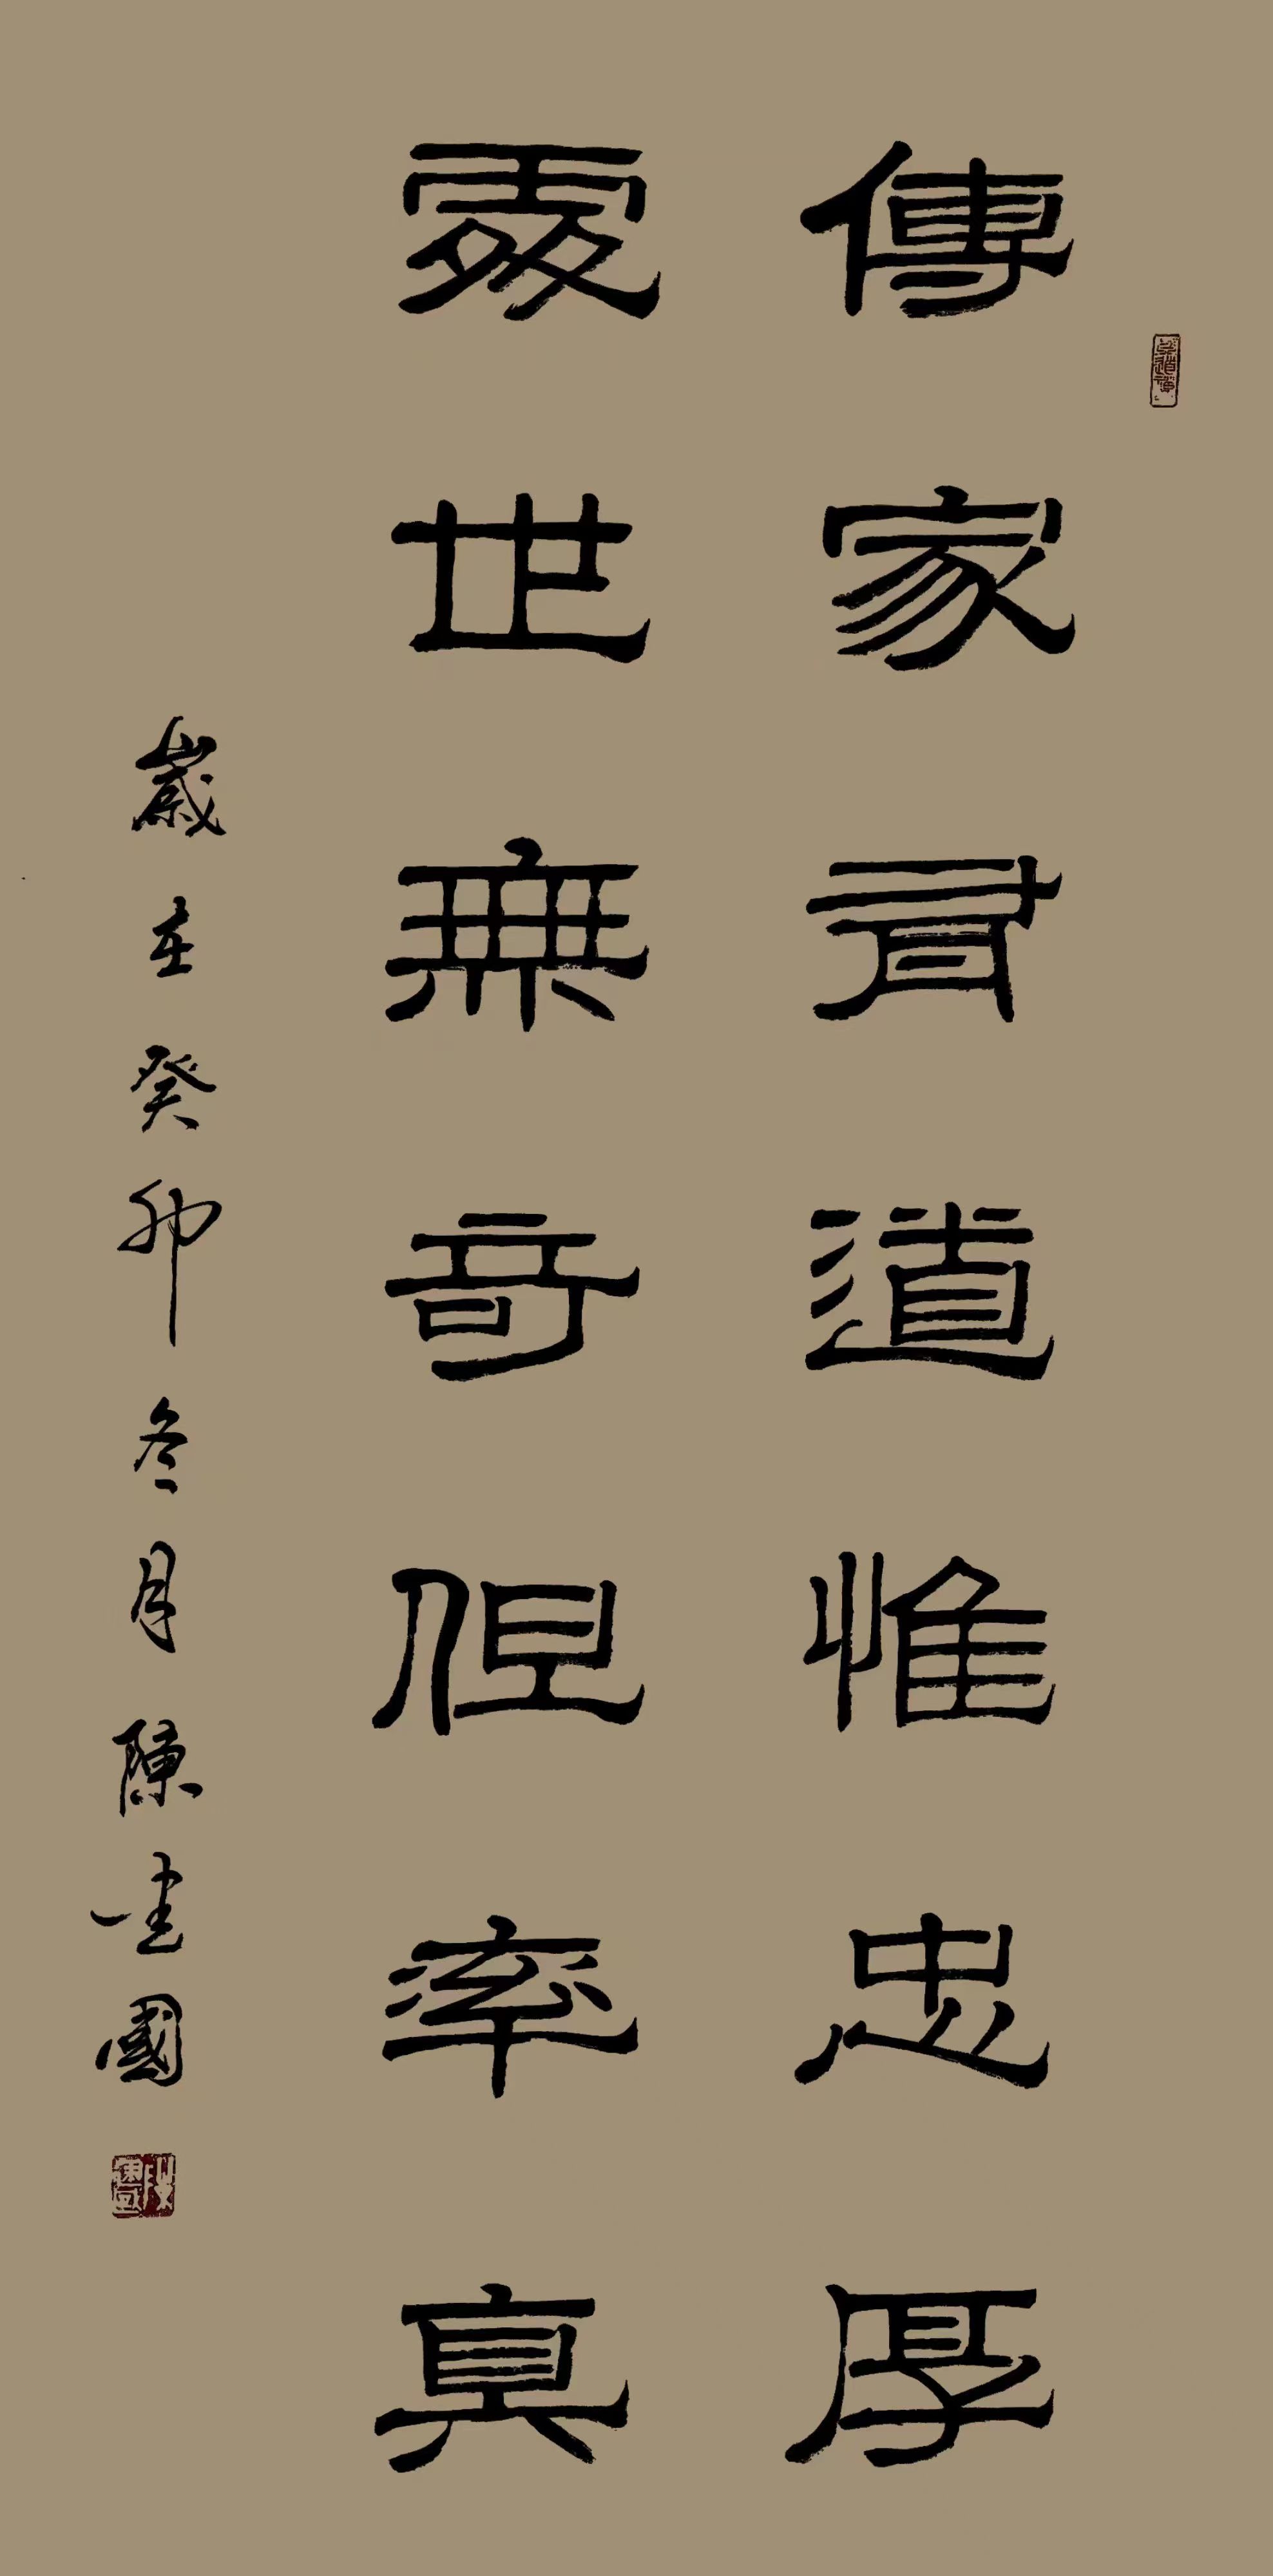 傳家有道惟忠厚
處世無奇但率真
歲在癸卯冬月陳建國